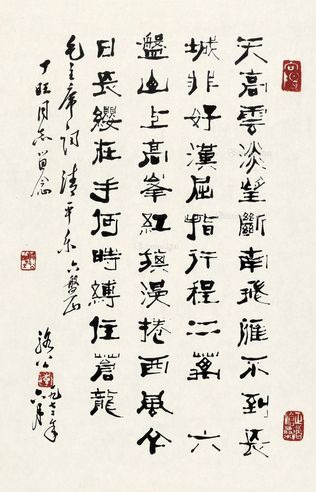 天高雲淡望斷南飛雁不到長
城非好漢屈指行程二萬六
盤山上高峯紅旗漫捲西風今
日長纓在手何時縛住蒼龍
毛主席詞清平乐六盤山
丁旺同志留念
六月